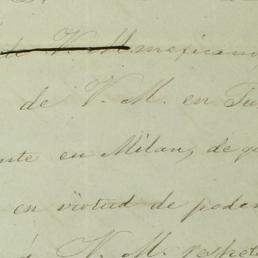 de V. M. mexicano
de V. M. en Tu
nte en Milan, de q
en virtud de poder
á V. M. respet